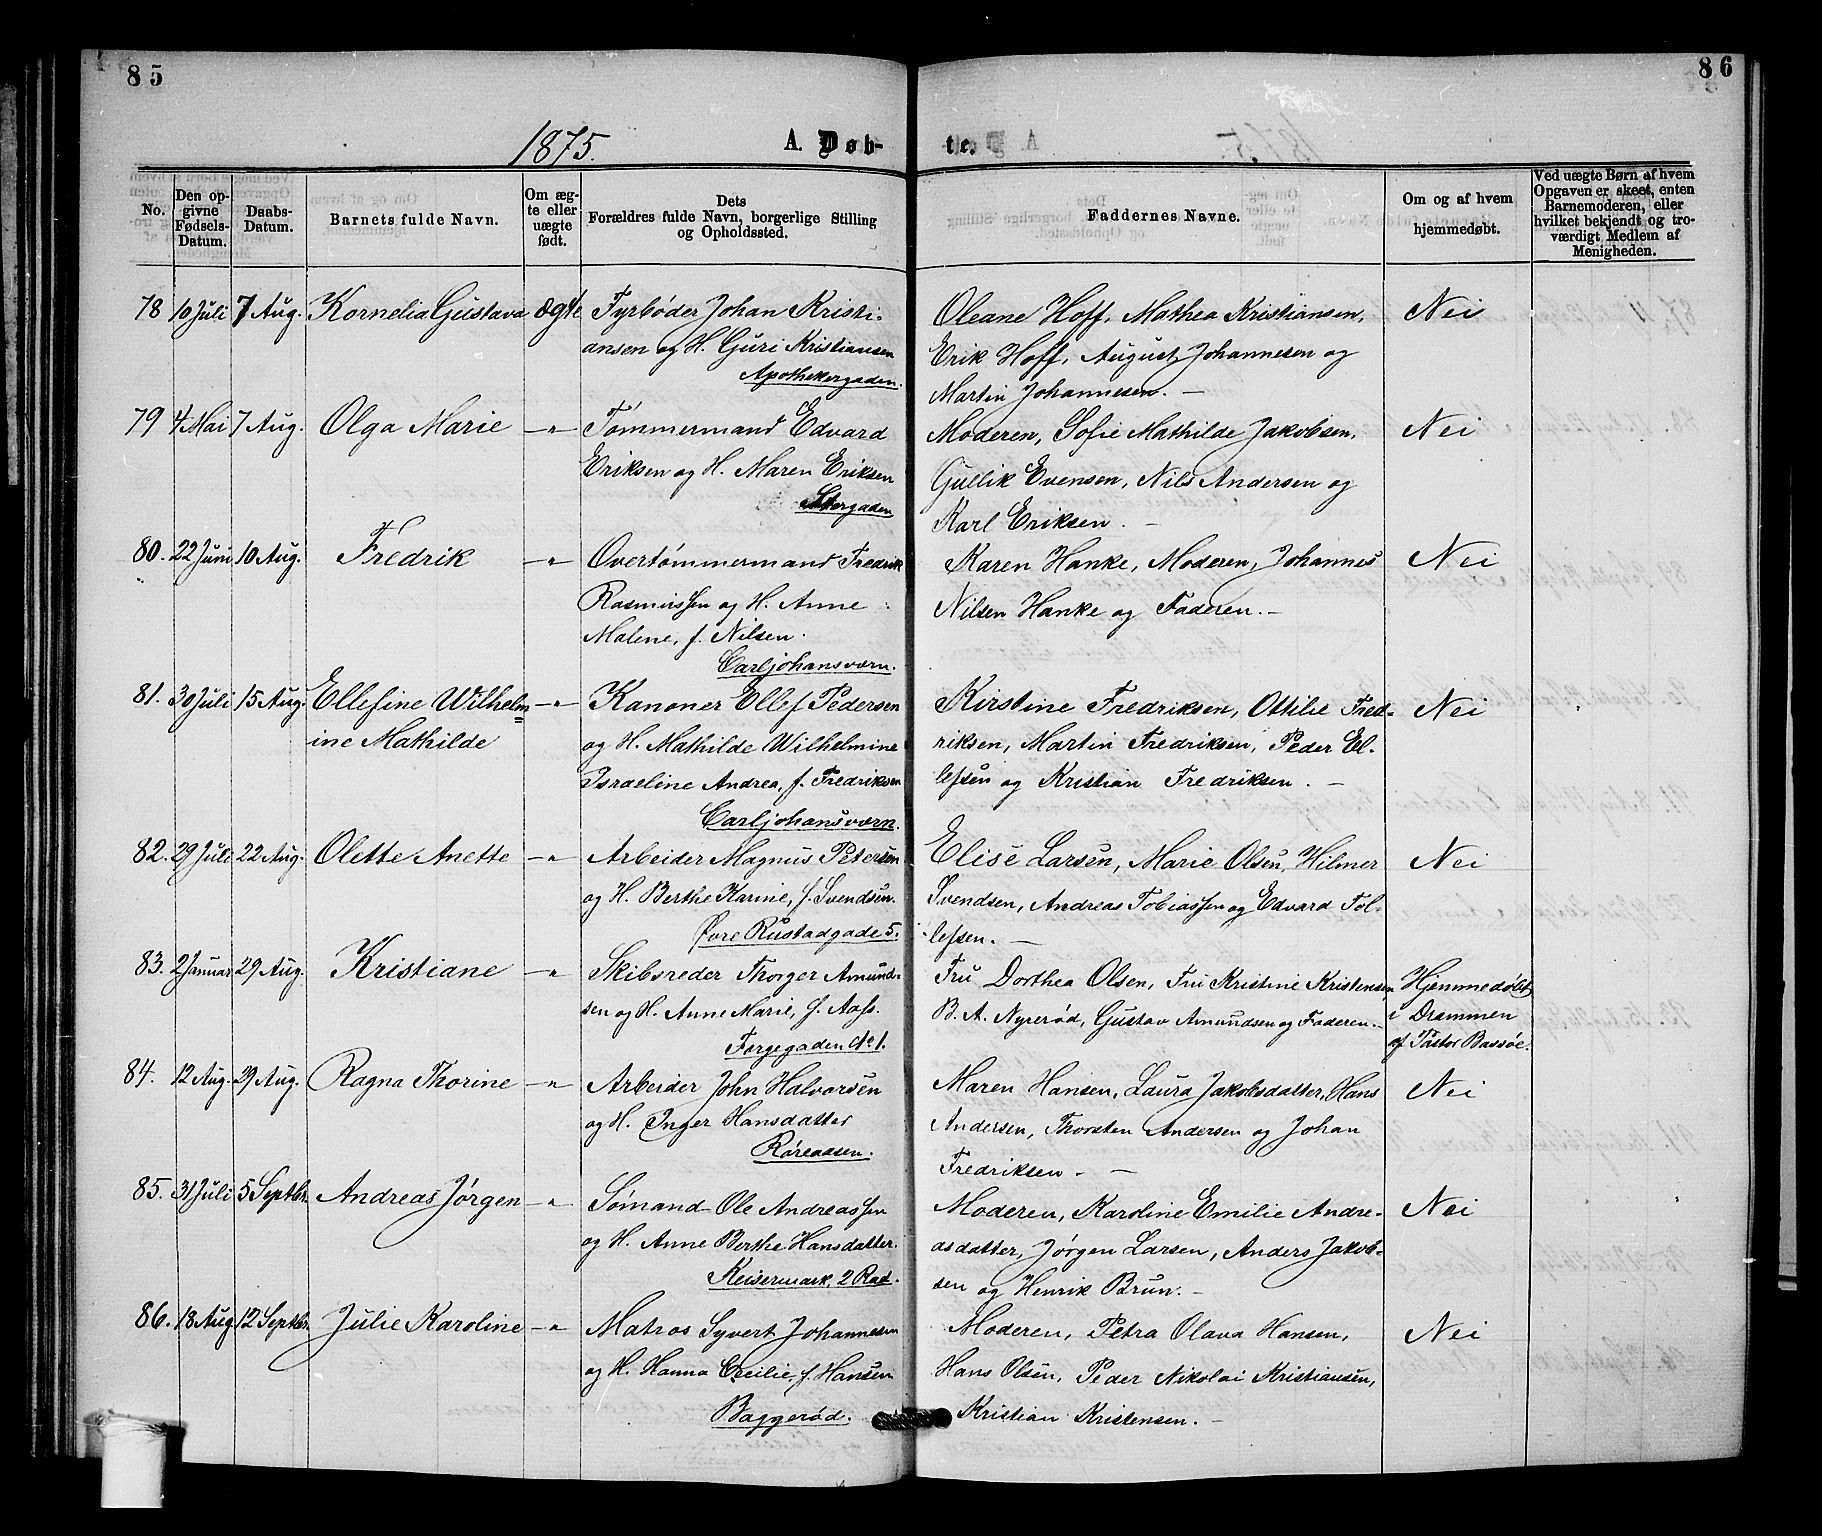 85
86
1875.
A. Døb-
te.
No.
Den op-
givne
Fødsels-
Datum.
Daabs-
Datum.
Barnets fulde Navn.
Om æg-
te eller
uægte
født.
Dets
Forældres fulde Navn, borgerlige Stilling
og Opholdssted.
Faddernes Navne.
Om og af hvem
hjemmedøbt.
Ved uægte Børn af hvem
Opgaven er skeet, enten
Barnemoderen, eller
hvilket bekjendt og tro-
værdigt Medlem af
Menigheden.
78 10 Juli 7 Aug. Kornelia Gustava ægte Fyrbøder Johan Kristi- Oleane Hoff, Mathea Kristiansen, Nei
ansen og H. Guri Kristiansen Erik Hoff, August Johannesen og
Apothekergaden. Martin Johannesen. —
79 4 Mai 7 Aug. Olga Marie —„— Tømmermand Edvard Moderen, Sofie Mathilde Jakobsen, Nei
Eriksen og H. Maren Eriksen Gullik Evensen, Nils Andersen og
Storgaden Karl Eriksen. —
80. 22 Juni 10 Aug. Fredrik —„— Overtømmermand Fredrik Karen Hanke, Moderen, Johannes Nei
Rasmussen og H. Anne Nilsen Hanke og Faderen. —
Malene, f. Nilsen.
Carljohansværn.
81. 30 Juli 15 Aug. Ellefine Wilhelm —„— Kanoner Ellef Pedersen Kirstine Fredriksen, Ottilie Fred- Nei
ine Mathilde og H. Mathilde Wilhelmine riksen, Martin Fredriksen, Peder El-
Israeline Andrea, f. Fredriksen lefsen og Kristian Fredriksen. —
Carljohansværn.
82. 29 Juli 22 Aug. Olette Anette —„— Arbeider Magnus Petersen Elise Larsen, Marie Olsen, Hilmer Nei
og H. Berthe Karine, f. Svendsen. Svendsen, Andreas Tobiassen og Edvard Tol-
Øvre Rustadgade 5. lefsen. —
83. 2 Januar 29 Aug. Kristiane —„— Skibsreder Thorger Amund- Fru Dorthea Olsen, Fru Kristine Kristensen, Hjemmedøbt
sen og H. Anne Marie, f. Aass. B. A. Nyrerød, Gustav Amundsen og Faderen. i Drammen
Torgegaden No 1. af Pastor Bassøe.
84. 12 Aug. 29 Aug. Ragna Thorine —„— Arbeider John Halvorsen Maren Hansen, Laura Jakobsdatter, Hans Nei
og H. Inger Hansdatter Andersen, Thorsten Andersen og Johan
Røreaasen. Fredriksen. —
85. 31 Juli 5 Septbr. Andreas Jørgen —„— Sømand Ole Andreassen Moderen, Karoline Emilie Andre- Nei
og H. Anne Berthe Hansdatter. asdatter, Jørgen Larsen, Anders Jakob-
Keisermark, 2 Rad. sen og Henrik Brun. —
86. 18 Aug. 12 Septbr. Julie Karoline —„— Matros Syvert Johannesen Moderen, Petra Olava Hansen, Nei
og H. Hanna Cecilie, f. Hansen Hans Olsen, Peder Nikolai Kristiansen,
Baggerød. Kristian Kristensen. —